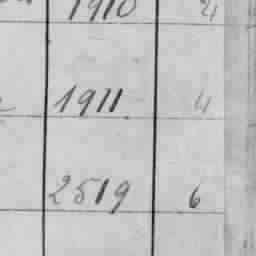 1910 4
1911 4
2519 6